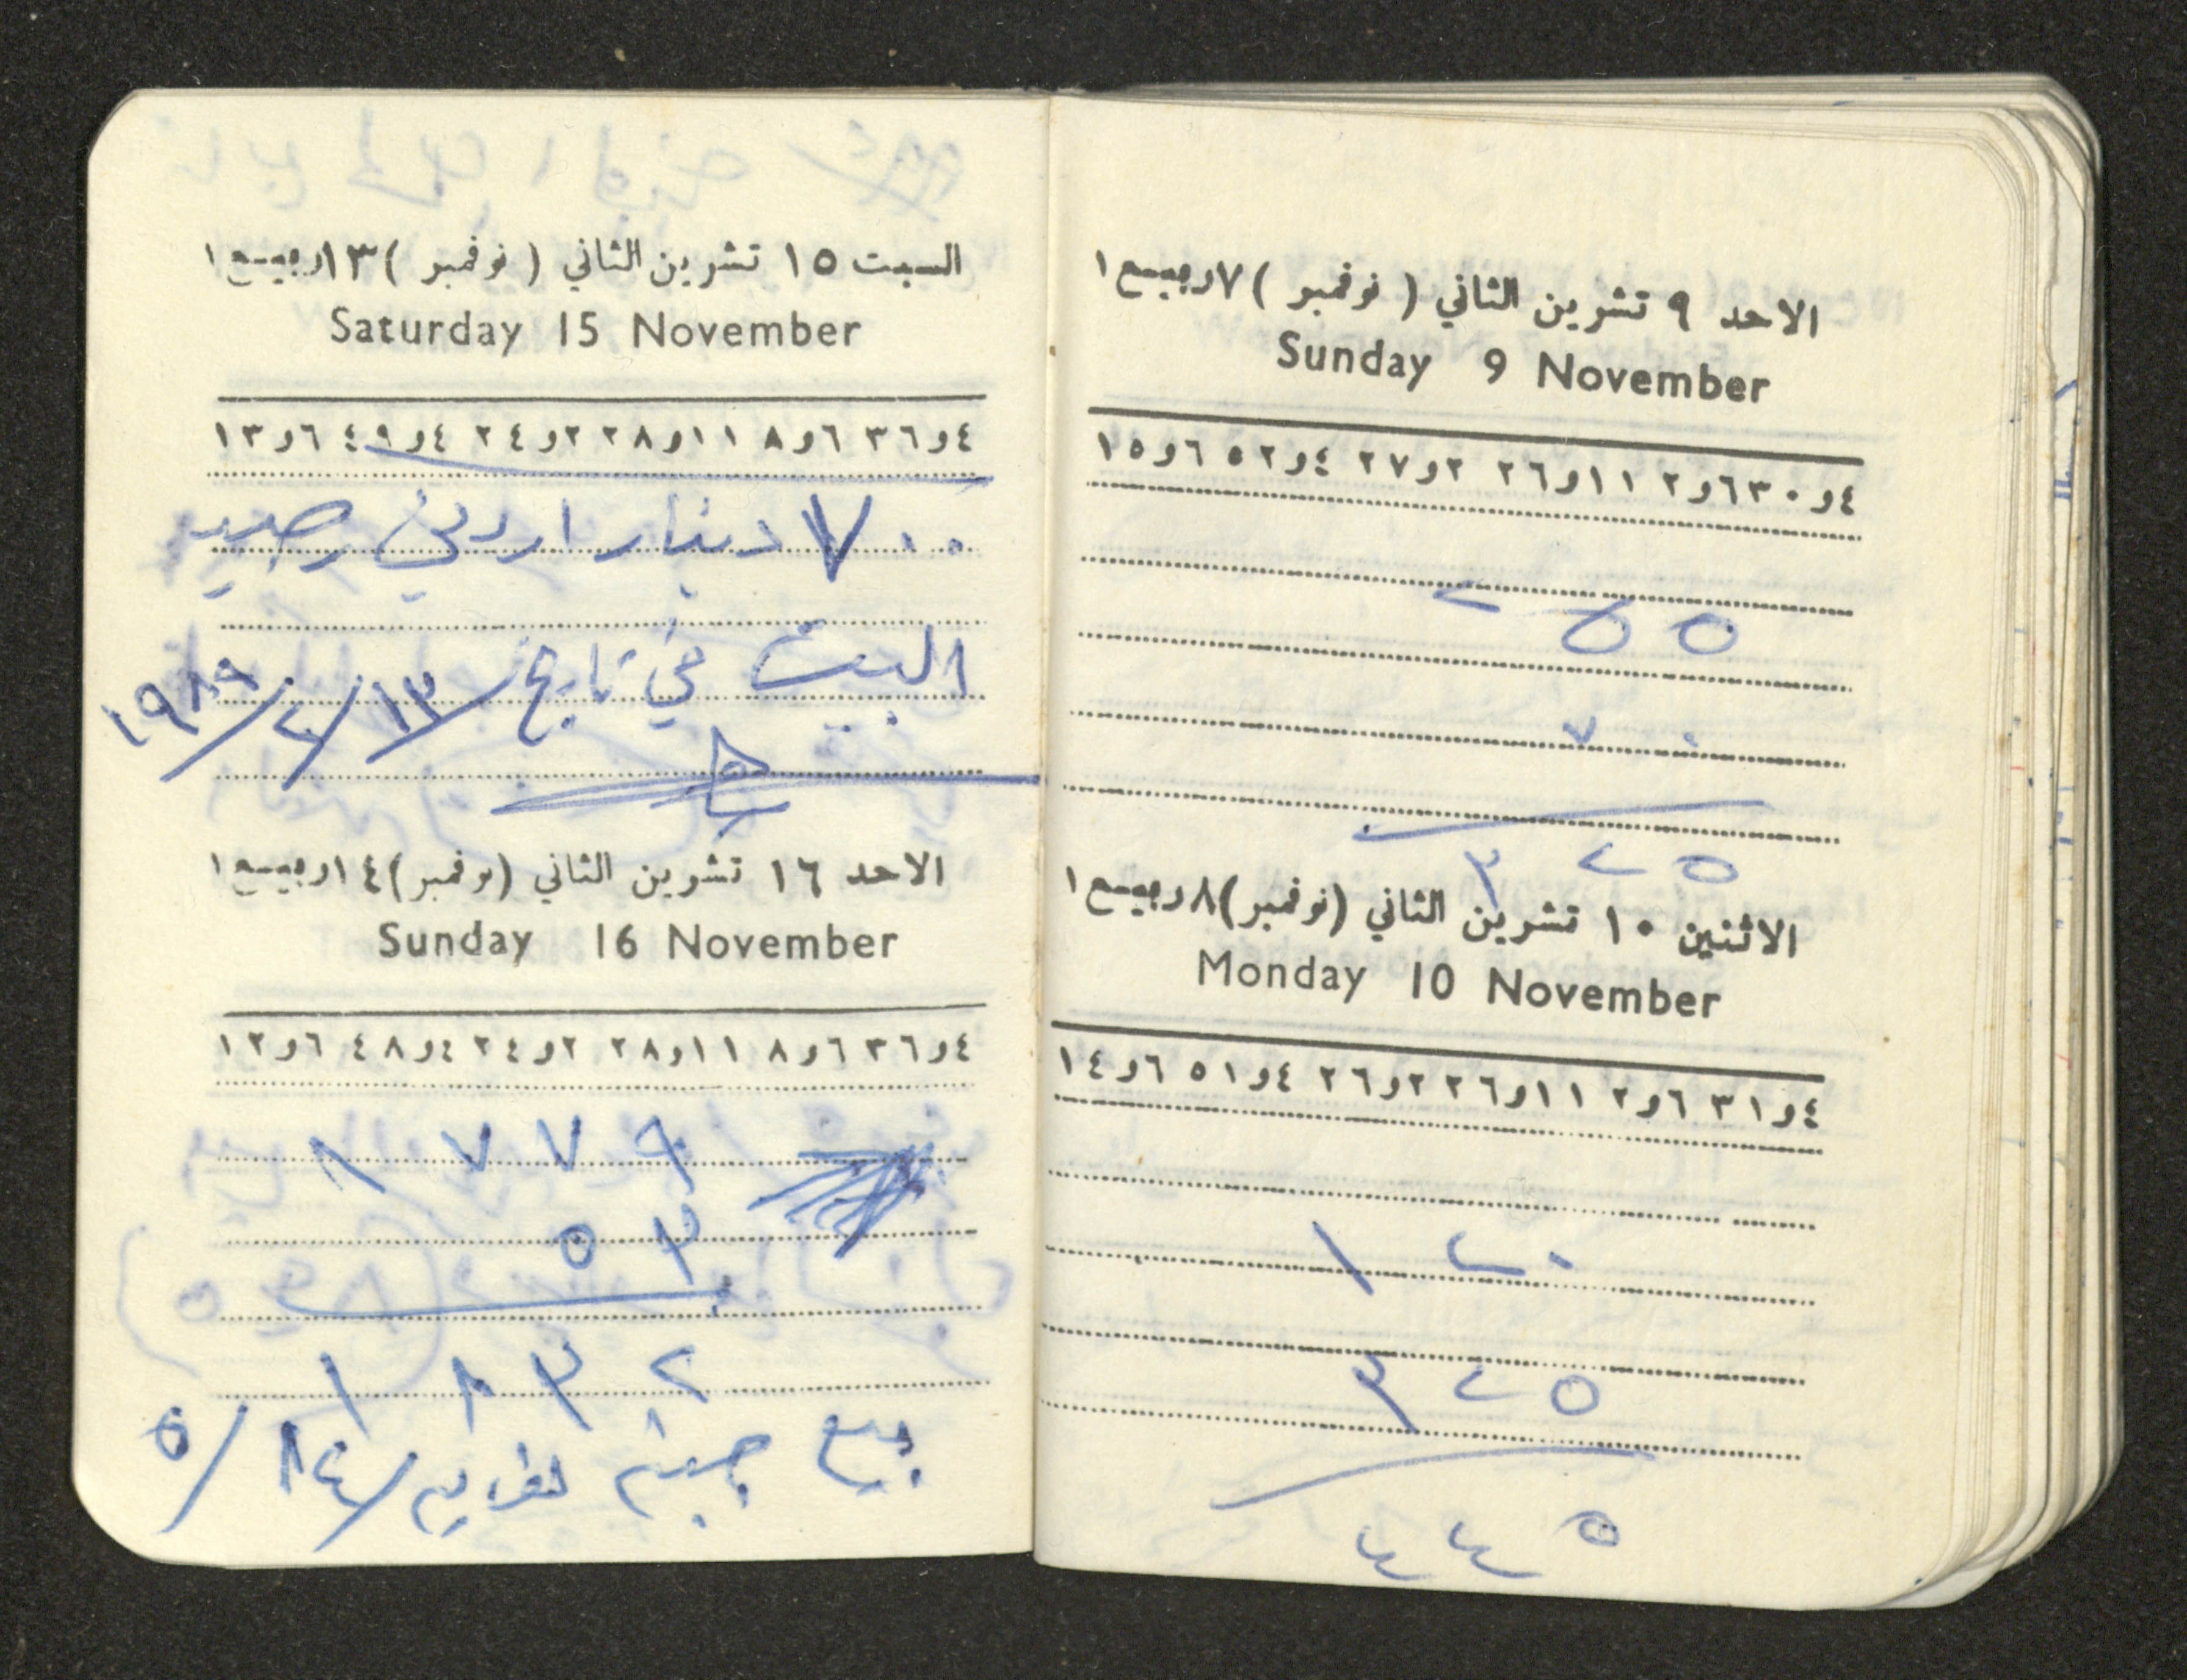 السبت ١٥ تشرين الثاني ( نوفمبر ) ١٣ ربيـع ١
Saturday 15 November
٤و٣٦ ٦و٨ ١١و٢٨ ٢و٢٤ ٤و٤٩ ٦و١٣
٧٠٠ دينار اردني رصيد
البيت في تاريخ ١٣/٤/١٩٨٩
الاحد ١٦ تشرين الثاني (نوفمبر) ١٤ ربيـع ١
Sunday 16 November
٤و٣٦ ٦و٨ ١١و٢٨ ٢و٢٤ ٤و٤٨ ٦و١٢
١٧٧٩
٥٣
١٨٣٢
بيع جبنة ٨٤/ ٥/
الاحد ٩ تشرين الثاني ( نوفمبر ) ٧ ربيـع ١
Sunday 9 November
٤و٣٠ ٦و٢ ١١و٢٦ ٢و٢٧ ٤و٥٢ ٦و١٥
٢٥٥
٧٠
٣٢٥
الاثنين ١٠ تشرين الثاني (نوفمبر) ٨ ربيـع ١
Monday 10 November
٤و٣١ ٦و٢ ١١و٢٦ ٢و٢٦ ٤و٥١ ٦و١٤
١٢٠
٣٢٥
٤٤٥